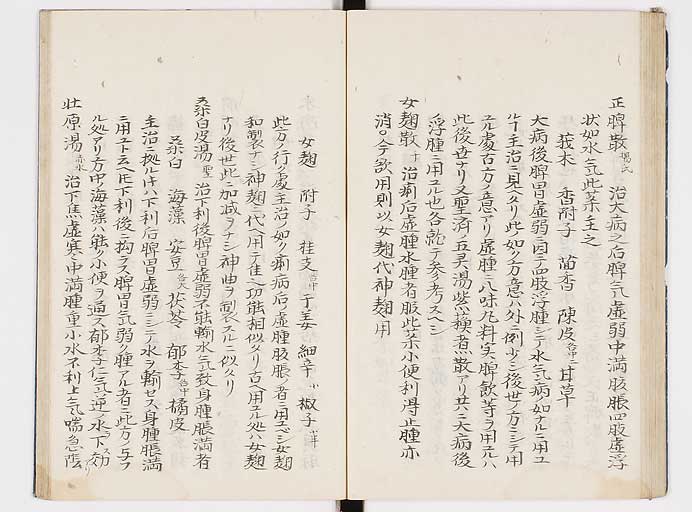 正脾散 楊氏 治大病之后脾气虚弱中満腹脹四肢虚浮
状如水气此薬主之
莪朮 香附子 茴香 陳皮 各中 甘草
大病後脾胃虚弱ニ因テ四肢浮腫シテ水气病如クナルニ用ユ
ル主治ニ見ヘタリ此如ク方意ハ外ニ例少シ後世ノ方ニシテ用
虚腫ニ八味丸料実脾飲等ヲ用ユルハ
此後世ナリ又聖済ノ五霊湯 散アリ共ニ大病後
浮腫ニ用ユル也各就テ参考スヘシ
女麹散 治痢后虚腫水腫者服此薬小便利得止腫亦
消今欲用則以女麹代神麹用
女麹 附子 桂支 各中 干姜 細辛 小 椒子 小半
此方ノ行ク處主治ノ如ク痢病后ノ虚腫腹脹ノ者ニ用ユベシ女麹
和製ナシ神麹ニ代ヘ用テ佳シ功能相似タリ古ヘ用ユル処ハ女麹
ナリ後世此ニ加減ヲナシ神曲ヲ製スルニ似タリ
桑白皮湯 聖 治下利後脾胃虚弱不能輸水气致身腫脹満者
桑白 海藻 安豆 各大 茯苓 郁李 各中 橘皮
主治ニ拠ルトキハ下利后脾胃虚弱ニシテ水ヲ輸セス身腫脹満
ニ用ユト云ヘトモ下利後ニ拘ラス脾胃气弱ク腫アル者ニ此方ヲ与フ
ル処アリ方中海藻ハ能ク小便ヲ通ス郁李仁气逆ノ水ヲ下ス効
壮原湯 赤水 治下焦虚寒中満腫重小水不利上气喘急陰